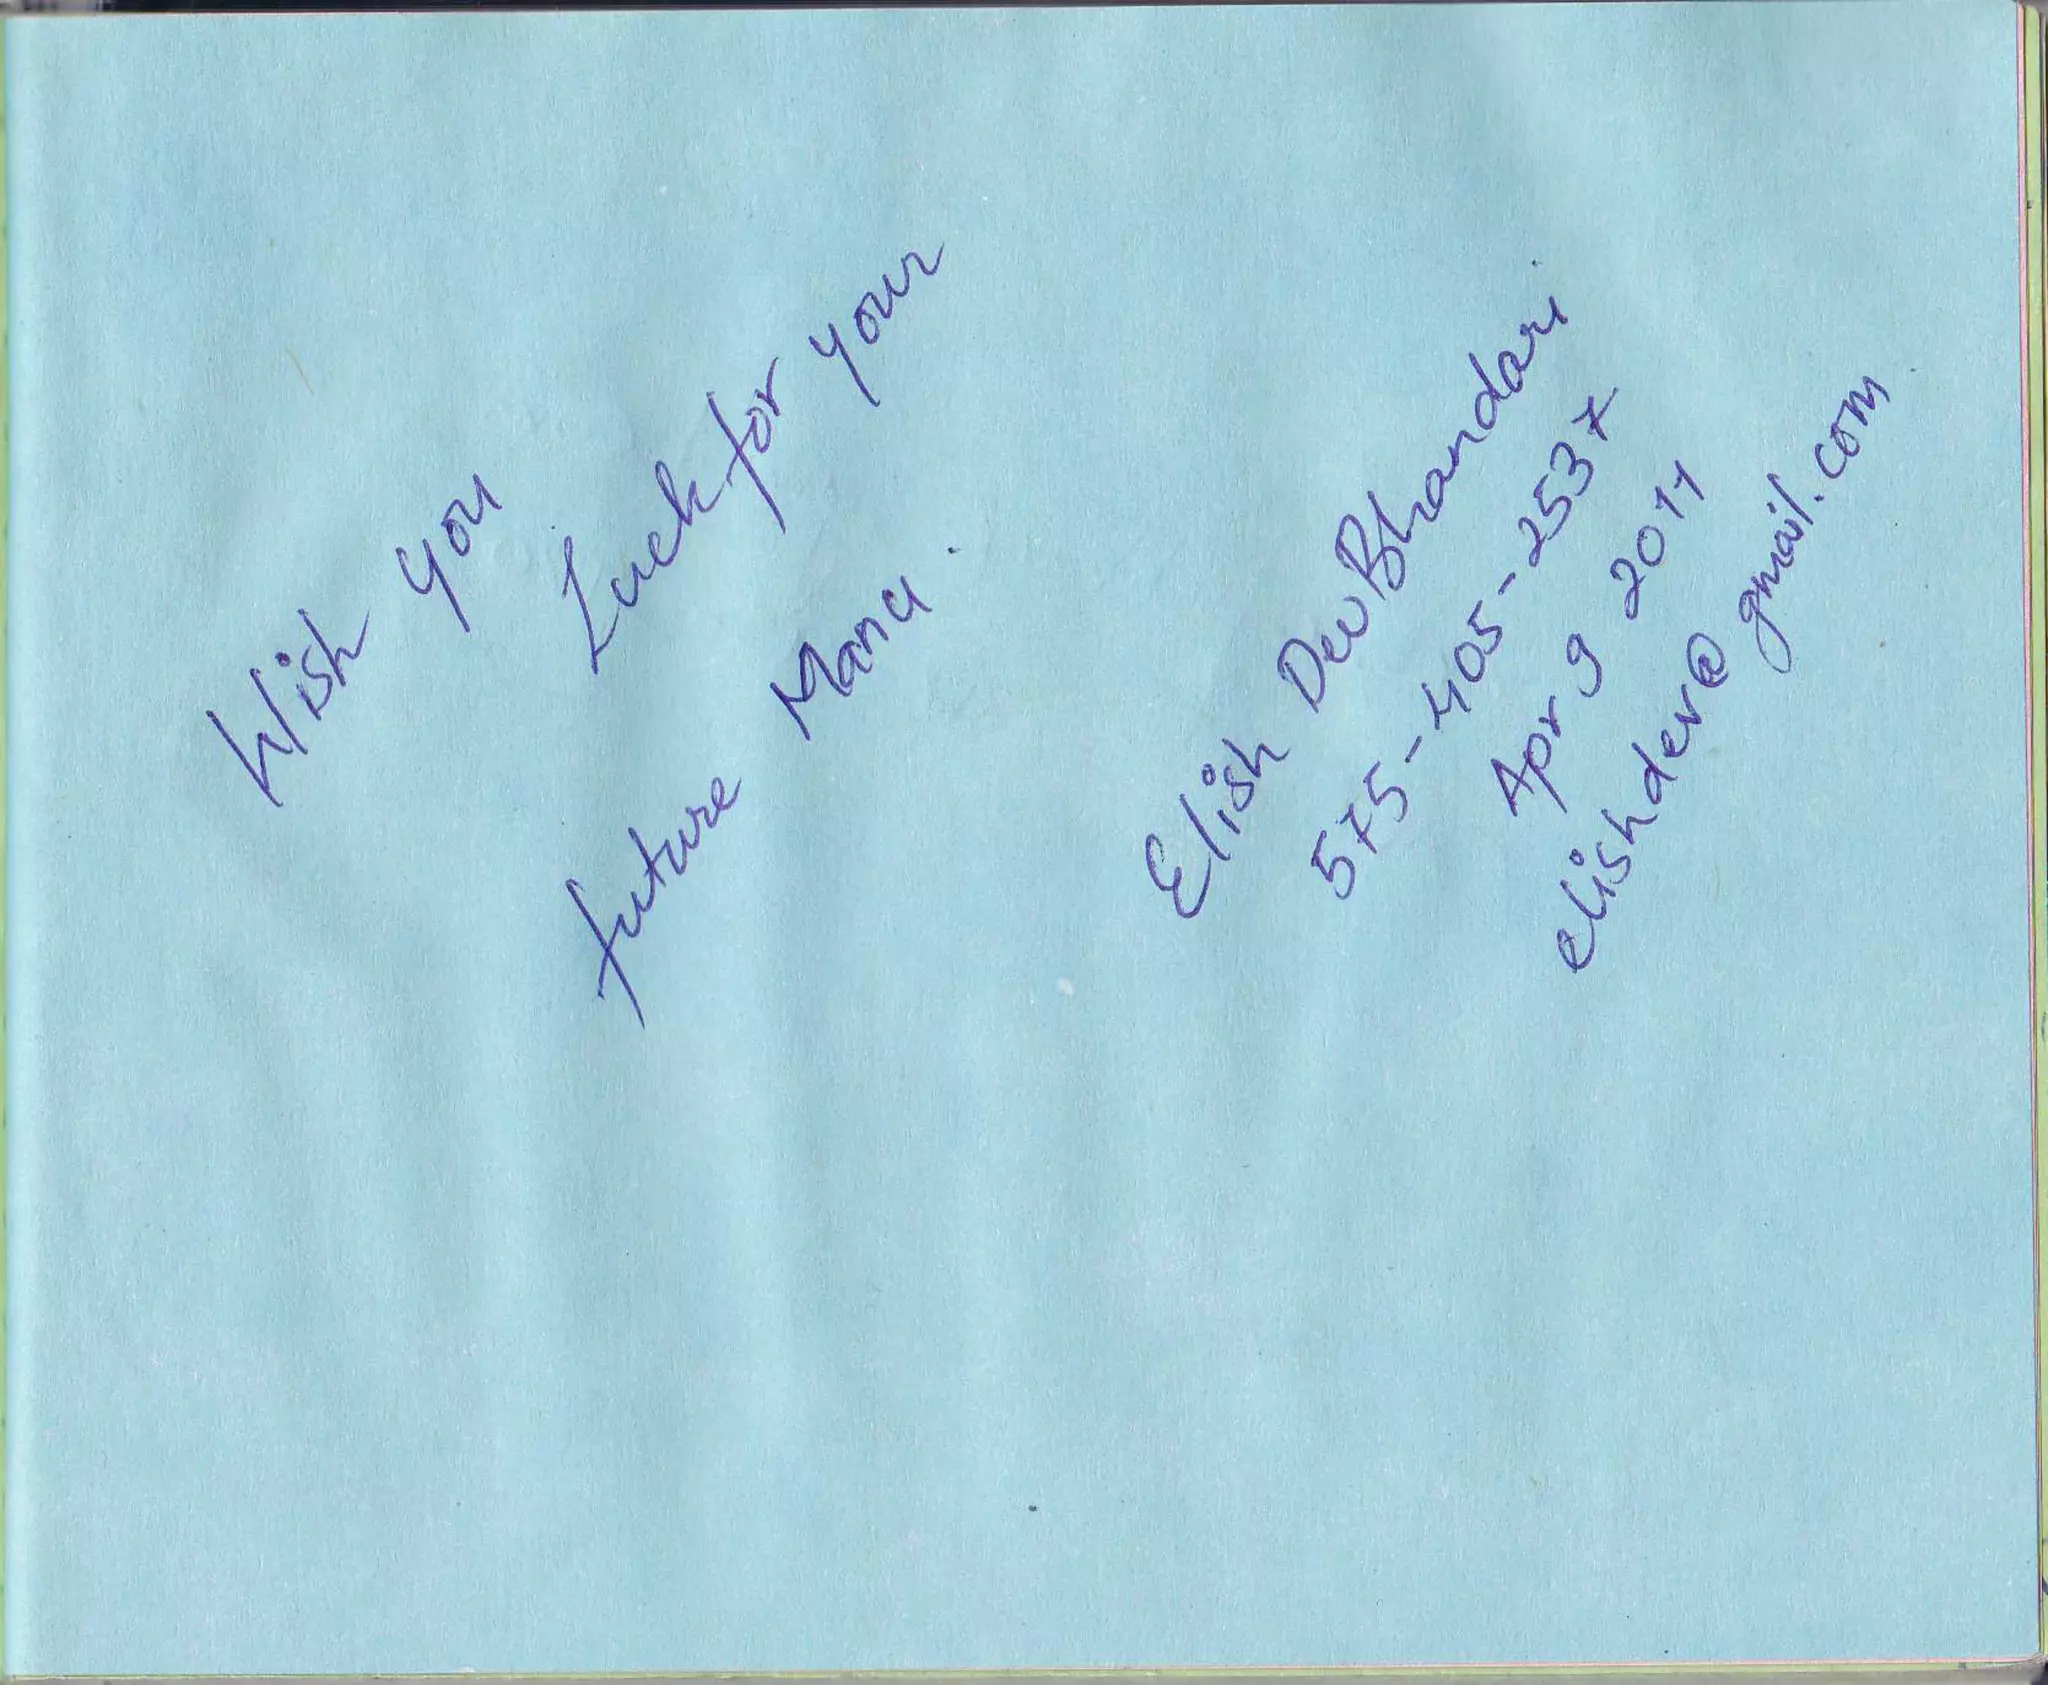 Wish you
Luck for your
future Manu.
Elish Dev Bhandari
575-405-2537
Apr 9 2011
elishdev@gmail.com